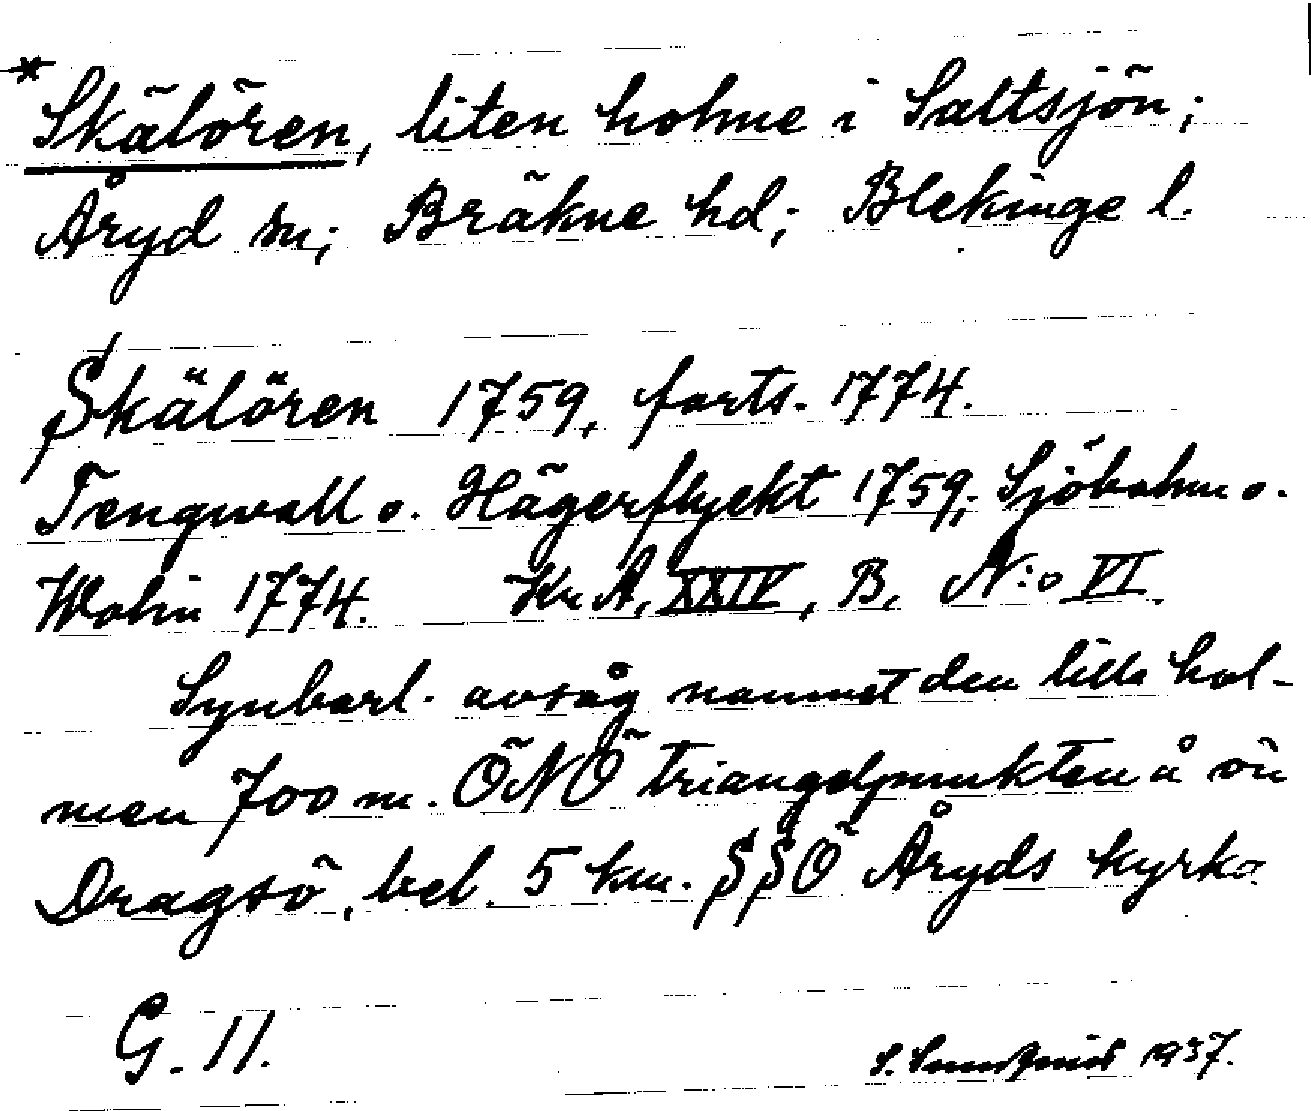 * Skälören, liten holme i Saltsjön;
Åryd sn; Bräkne hd; Blekinge l.
Skälören 1759, forts. 1774.
Tengwall o. Hägerflyckt 1759; Sjöbohm o.
Wohn 1774. Kr. A, XXIV, B, N:o VI
Synbarl. avsåg namnet den lilla hol-
men 700 m. ÖNÖ triangelpunkten å ön
Dragsö, bel. 5 km. SSÖ Åryds kyrka.
G. 11. S. Sundquist 1937.